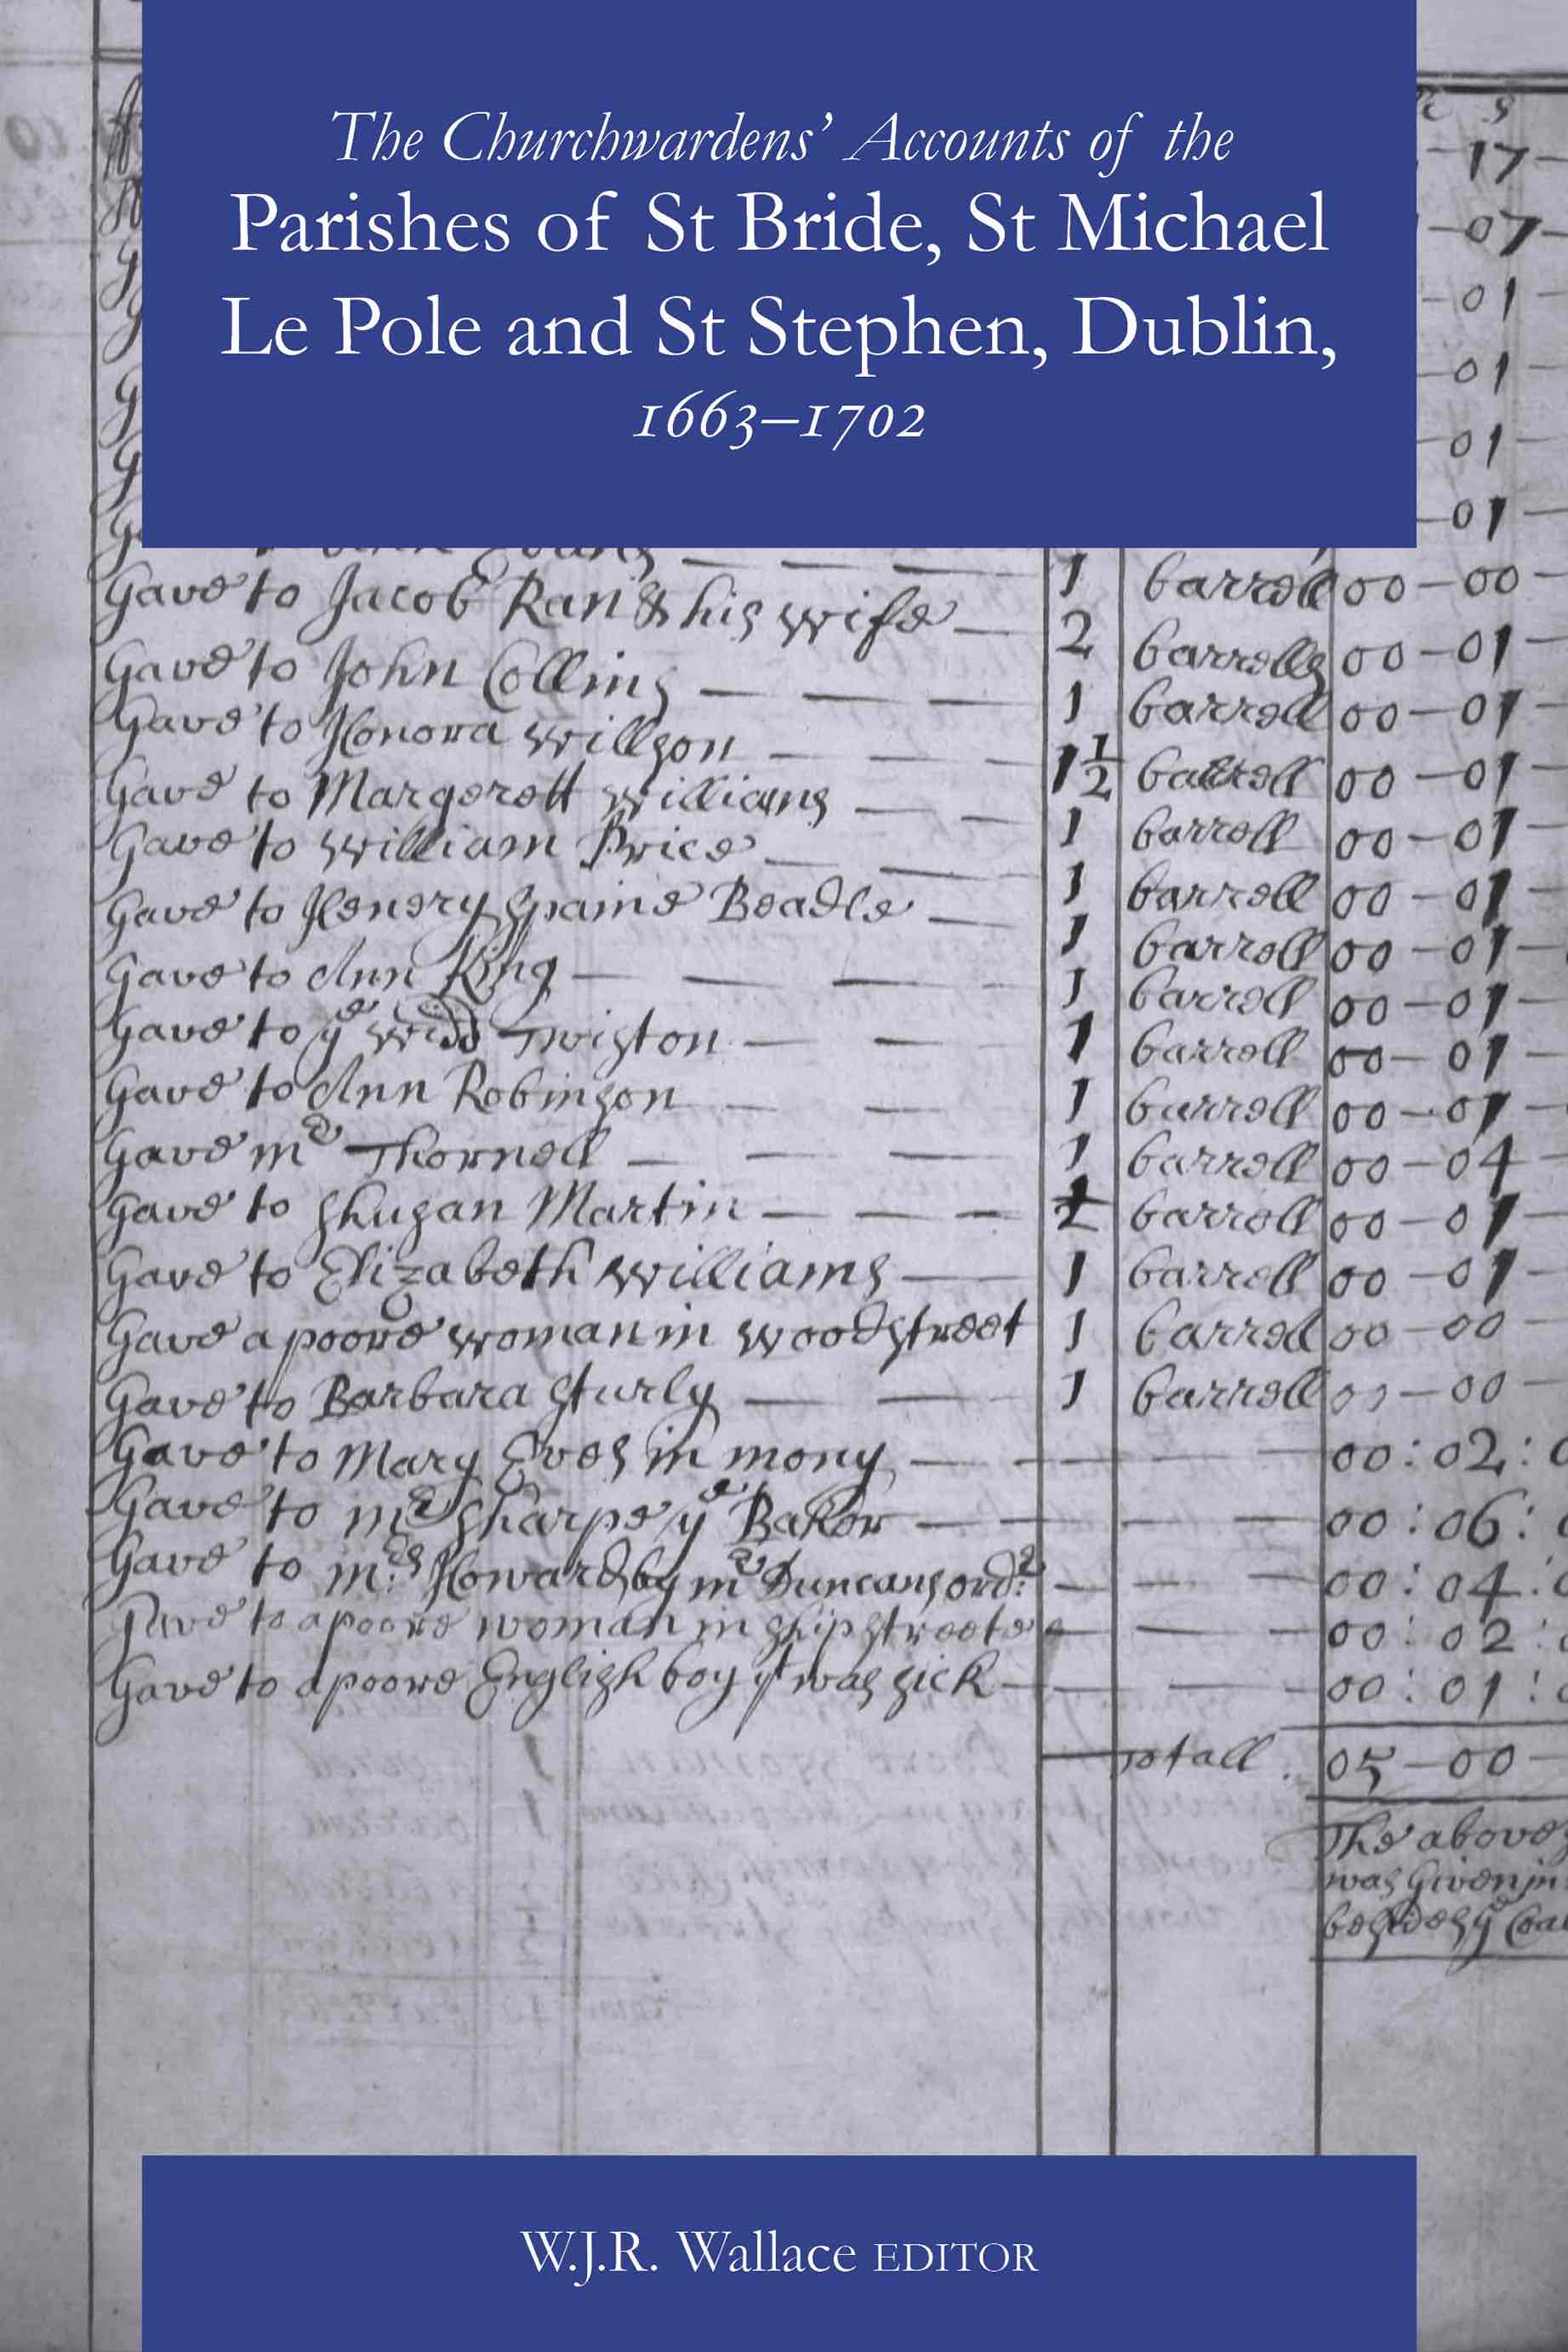 The Churchwardens' Accounts of the
Parishes of St Bride, St Michael
Le Pole and St Stephen, Dublin,
1663–1702
s
17
07
01
01
01
01
1 barrell 00 – 00
Gave to Jacob Ran & his wife 2 barrells 00 – 01
Gave to John Collins 1 barrell 00 – 01
Gave to Honora Willson 1½ barrell 00 – 01
Gave to Margerett Williams 1 barrell 00 – 01
Gave to William Price 1 barrell 00 – 01
Gave to Henery Spaine Beadle 1 barrell 00 – 01
Gave to Ann King 1 barrell 00 – 01
Gave to ye Widd Twiston 1 barrell 00 – 01
Gave to Ann Robinson 1 barrell 00 – 01
Gave mr Thornell 1 barrell 00 – 04
Gave to Shusan Martin barroll 00 – 01
Gave to Elizabeth Williams 1 barrell 00 – 01
Gave a poore woman in Woodstreet 1 barrel 00 – 00
Gave to Barbara Sturly 1 barrell 00 – 00
Gave to Mary Eves in mony 00 : 02 :
Gave to mr Sharpe ye Baker 00 : 06 :
Gave to mrs Howard by mr 00 : 04 :
Gave to a poore woman in Ship streete 00 : 02 :
Gave to a poore English boy yt was sick 00 : 01 :
Totall 05 – 00
The above
was Given in
besides ye Coal
W.J.R. Wallace EDITOR